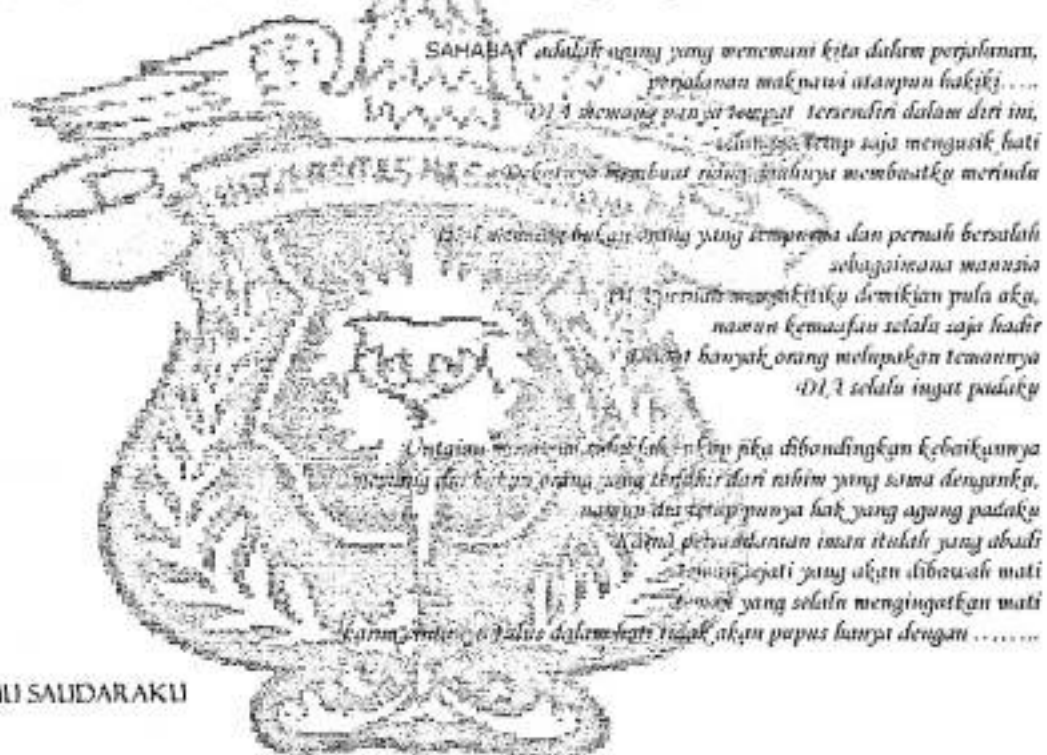 SAHABAT adalah orang yang menemani kita dalam perjalanan,
perjalanan maknawi ataupun hakiki…..
DIA memang punya tempat tersendiri dalam diri ini,
tetap saja mengusik hati
membuat riang, jauhnya membuatku merindu
DIA memang bukan orang yang sempurna dan pernah bersalah
sebagaimana manusia
DIA pernah menyakitiku demikian pula aku,
namun kemaafan selalu saja hadir
Disaat banyak orang melupakan temannya
DIA selalu ingat padaku
Untaian ini jika dibandingkan kebaikannya
memang dia bukan orang yang terlahir dari rahim yang sama denganku,
namun dia tetap punya hak yang agung padaku
Karna persaudaraan iman itulah yang abadi
teman sejati yang akan dibawah mati
teman yang selalu mengingatkan mati
karna tulus dalam hati tidak akan pupus hanya dengan ........
SAUDARAKU